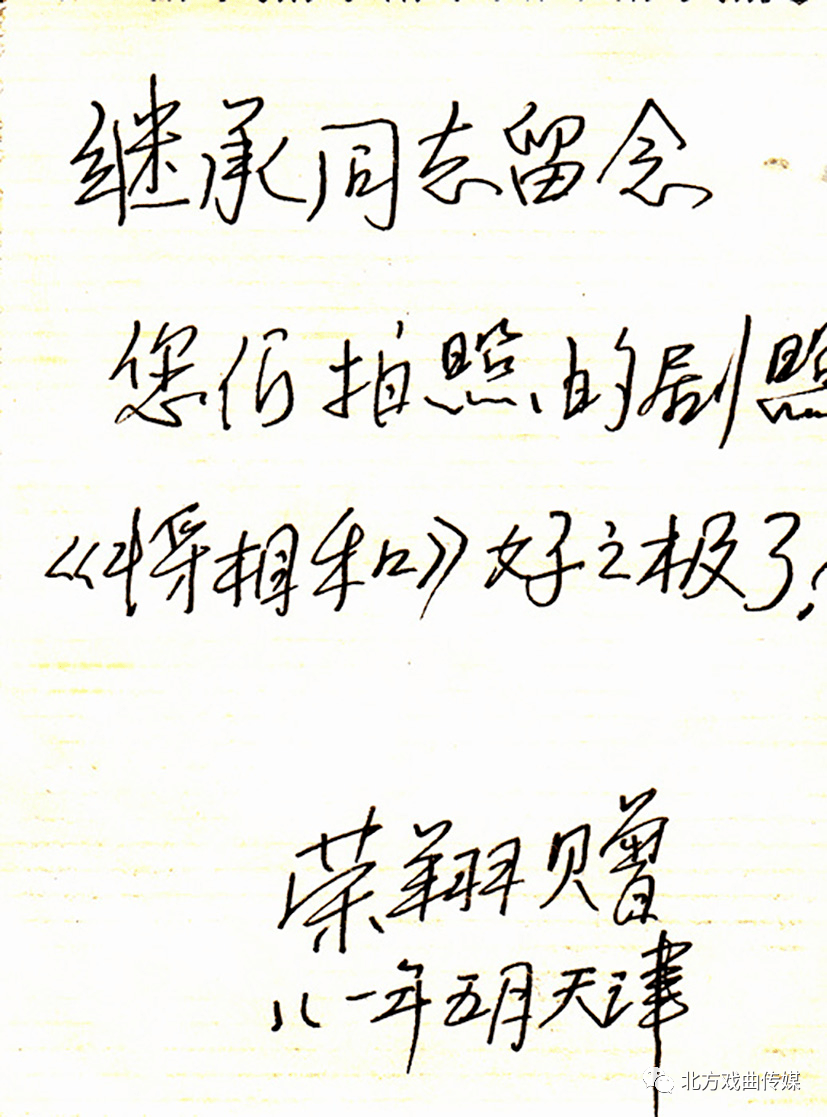 继承同志留念
您们拍照的剧照
《将相和》好之极了！
荣翔赠
八一年五月天津
北方戏曲传媒